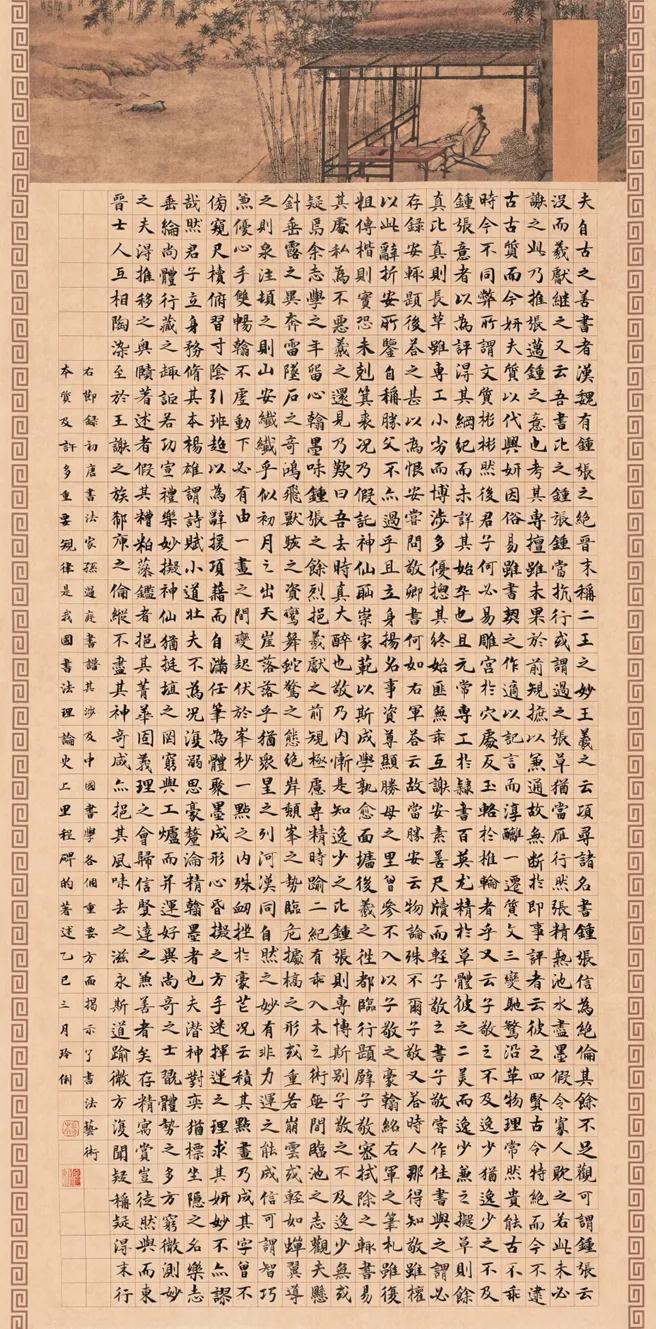 夫自古之善書者漢魏有鍾張之絕晉末稱二王之妙王羲之云頃尋諸名書鍾張信為絕倫其餘不足觀可謂鍾張云
沒而羲獻繼之又云吾書比之鍾張鍾當抗行或謂過之張草猶當雁行然張精熟池水盡墨假令寡人耽之若此未必
謝之此乃推張邁鍾之意也考其專擅雖未果於前規摭以兼通故無慚於即事評者云彼之四賢古今特絕而今不逮
古古質而今妍夫質以代興妍因俗易雖書契之作適以記言而淳醨一遷質文三變馳騖沿革物理常然貴能古不乖
時今不同弊所謂文質彬彬然後君子何必易雕宮於穴處反玉輅於椎輪者乎又云子敬之不及逸少猶逸少之不及
鍾張意者以為評得其綱紀而未詳其始卒也且元常專工於隸書百英尤精於草體彼之二美而逸少兼之擬草則餘
真比真則長草雖專工小劣而博涉多優摠其終始匪無乖互謝安素善尺牘而輕子敬之書子敬嘗作佳書與之謂必
存録安輒題後答之甚以為恨安嘗問敬卿書何如右軍答云故當勝安云物論殊不爾子敬又答時人那得知敬雖權
以此辭折安所鑒自稱勝父不亦過乎且立身揚名事資尊顯勝母之里曾參不入以子敬之豪翰紹右軍之筆札雖復
粗傳楷則實恐未剋箕裘況乃假託神仙恥崇家範以斯成學孰愈面牆後羲之往都臨行題壁子敬密拭除之輒書易
其處私為不惡羲之還見乃歎曰吾去時真大醉也敬乃內慚是知逸少之比鍾張則專博斯別子敬之不及逸少無或
疑焉余志學之年留心翰墨味鍾張之餘烈挹羲獻之前規極慮專精時踰二紀有乖入木之術無間臨池之志觀夫懸
針垂露之異奔雷墜石之奇鴻飛獸駭之資鸞舞蛇驚之態絕岸頹峯之勢臨危據槁之形或重若崩雲或輕如蟬翼導
之則泉注頓之則山安纖纖乎似初月之出天崖落落乎猶眾星之列河漢同自然之妙有非力運之能成信可謂智巧
兼優心手雙暢翰不虛動下必有由一畫之間變起伏於峯杪一點之內殊衄挫於豪芒況云積其點畫乃成其字曾不
傍窺尺櫝俯習寸陰引班超以為辭援項藉而自滿任筆為體聚墨成形心昏擬之方手迷揮運之理求其妍妙不亦謬
哉然君子立身務脩其本楊雄謂詩賦小道壯夫不為況復溺思豪釐淪精翰墨者也夫潛神對奕猶標坐隱之名樂志
垂綸尚體行藏之趣詎若功宣禮樂妙擬神仙猶埏埴之罔窮與工爐而并運好異尚奇之士翫體勢之多方窮微測妙
之夫得推移之奧賾著述者假其糟粕藻鑒者挹其菁華固義理之會歸信賢達之兼善者矣存精寓賞豈徒然與而東
晉士人互相陶染至於王謝之族郗庾之倫縱不盡其神奇咸亦挹其風味去之滋永斯道踰微方復聞疑稱疑得末行
右節錄初唐書法家孫過庭書譜其涉及中國書學各個重要方面揭示了書法藝術
本質及許多重要規律是我國書法理論史上里程碑的著述乙巳三月玲俐